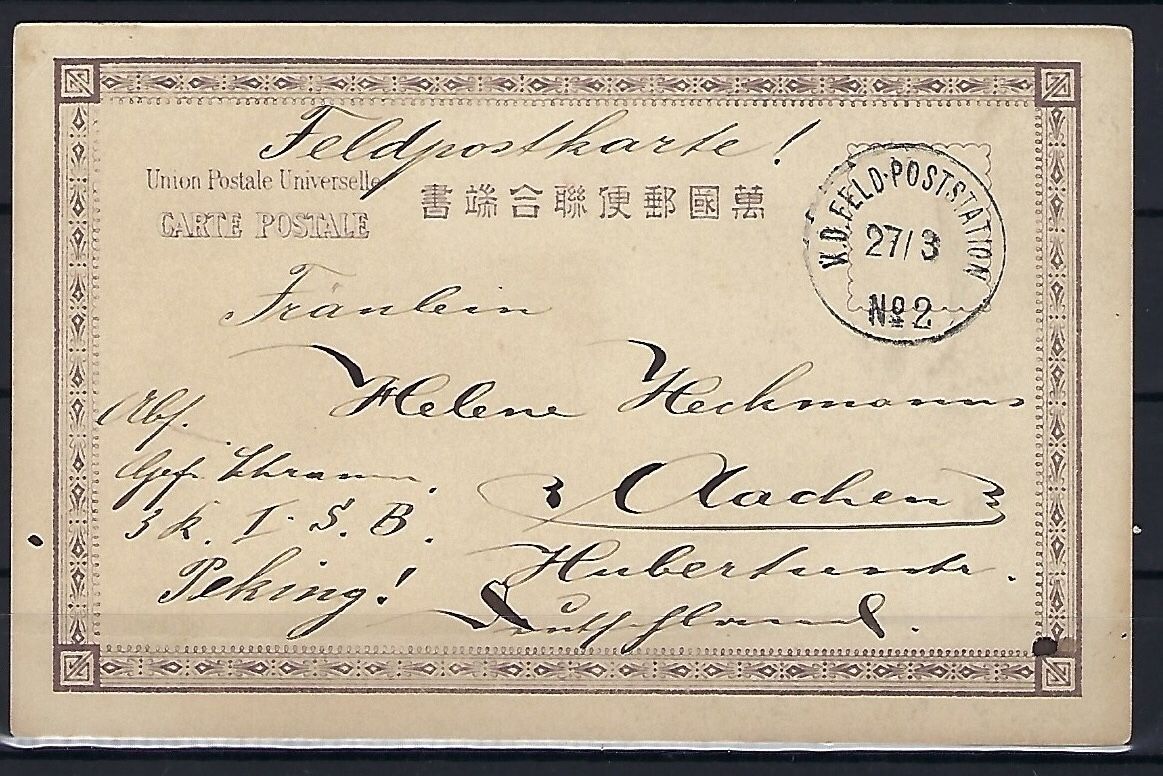 Feldpostkarte!
Union Postale Universelle
CARTE POSTALE
書端合聯便郵國萬
K.D. FELD-POSTSTATION
27/3
No 2
Fräulein
Helene Heckmanns
Aachen
Hubertusstr.
Deutschland.
Abs.
Gefr.
3 K. I. S. B.
Peking!